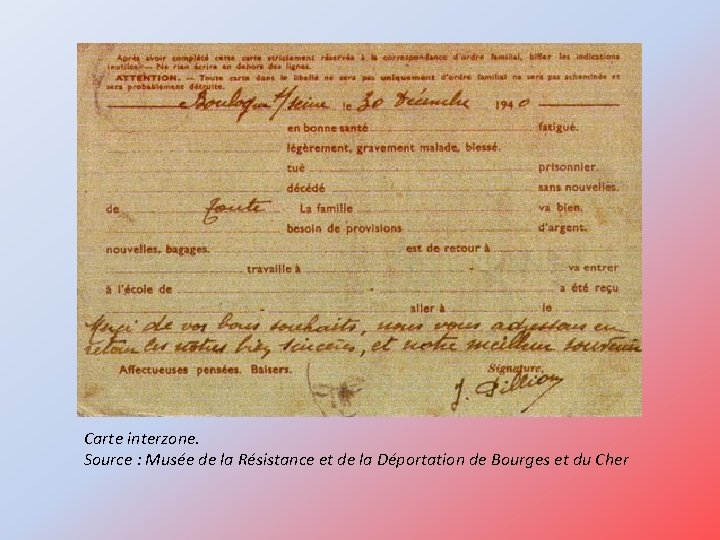 Après avoir complété cette carte strictement réservée à la correspondance d'ordre familial, biffer les indications
inutiles. — Ne rien écrire en dehors des lignes.
ATTENTION. — Toute carte dont le libellé ne sera pas uniquement d'ordre familial ne sera pas acheminée et
sera probablement détruite.
Boulogne s/ Seine le 30 Décembre 1940
en bonne santé fatigué.
légèrement, gravement malade, blessé.
tué prisonnier.
décédé sans nouvelles.
de toute La famille va bien.
besoin de provisions d'argent.
nouvelles, bagages. est de retour à
travaille à va entrer
à l'école de a été reçu
aller à le
Merci de vos bons souhaits, nous vous adressons en
retour les notres bien sincères, et notre meilleur souvenir
Affectueuses pensées. Baisers. Signature,
Carte interzone.
Source : Musée de la Résistance et de la Déportation de Bourges et du Cher